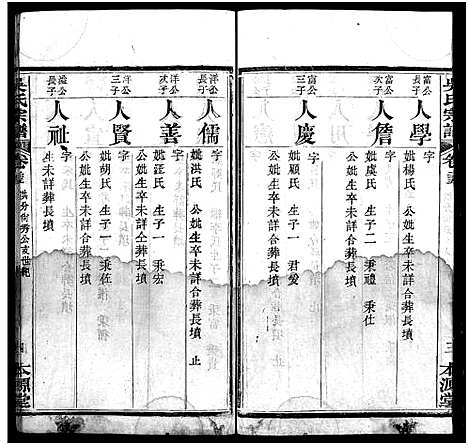 吳氏宗譜
三
本源堂
富公
長子
人學
字
妣楊氏
公妣生卒未詳合葬長墳
富公
次子
人詹
字
妣虞氏 生子二 秉禮 秉仕
公妣生卒未詳合葬長墳
富公
三子
人慶
字
妣顧氏 生子一 君愛
公妣生卒未詳合葬長墳
洋公
長子
人儒
字
妣洪氏
公妣生卒未詳合葬長墳 止
洋公
次子
人善
字
妣汪氏 生子一 秉宏
公妣生卒未詳仝葬長墳
洋公
三子
人賢
字
妣胡氏 生子一 秉佐
公妣生卒未詳合葬長墳
溢公
長子
人祉
字
生未詳葬長墳
吳氏宗譜
四
本源堂